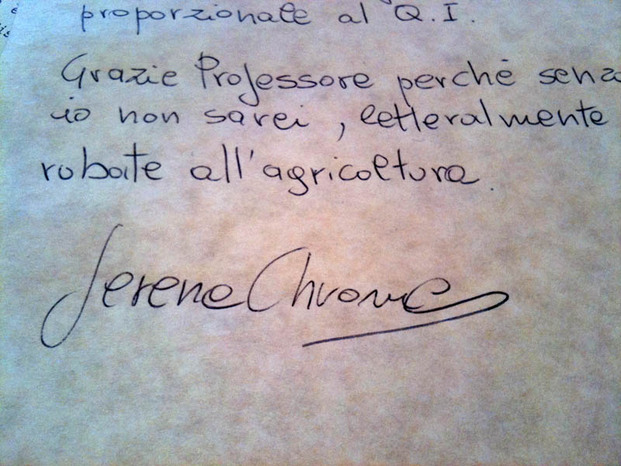 proporzionale al Q.I.
Grazie Professore perchè senza
io non sarei, letteralmente
robate all'agricoltura.
Serena Chrome